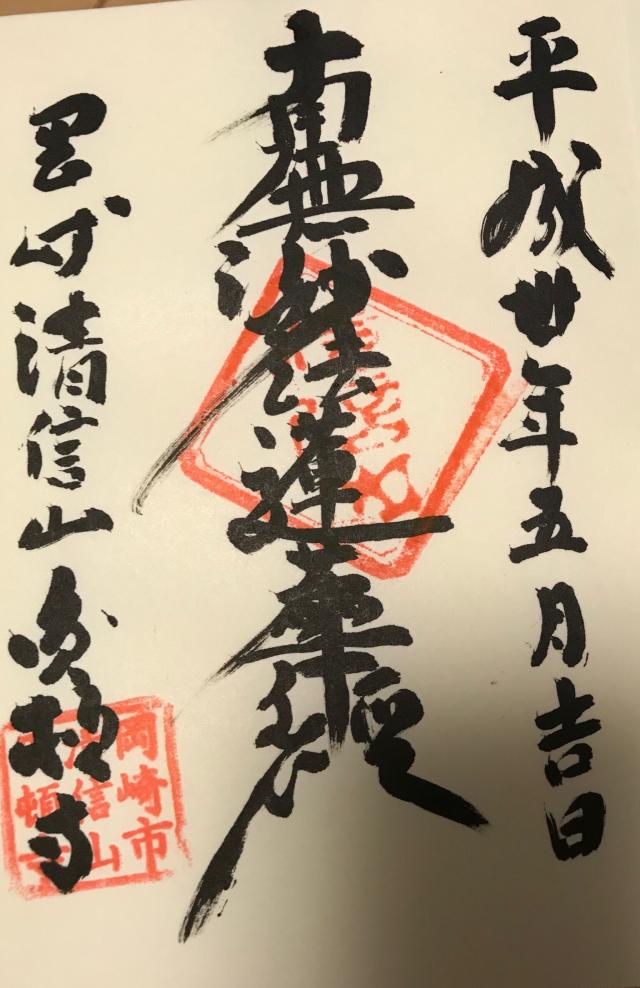 平成丗年五月吉日
南無妙法蓮華經
岡崎清信山圓頓寺
岡崎市
清信山
圓頓寺